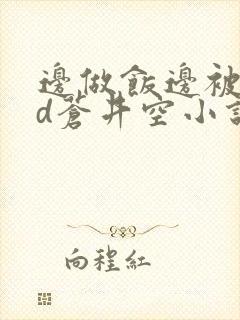 邊做飯邊被
d蒼井空小說
向程紅